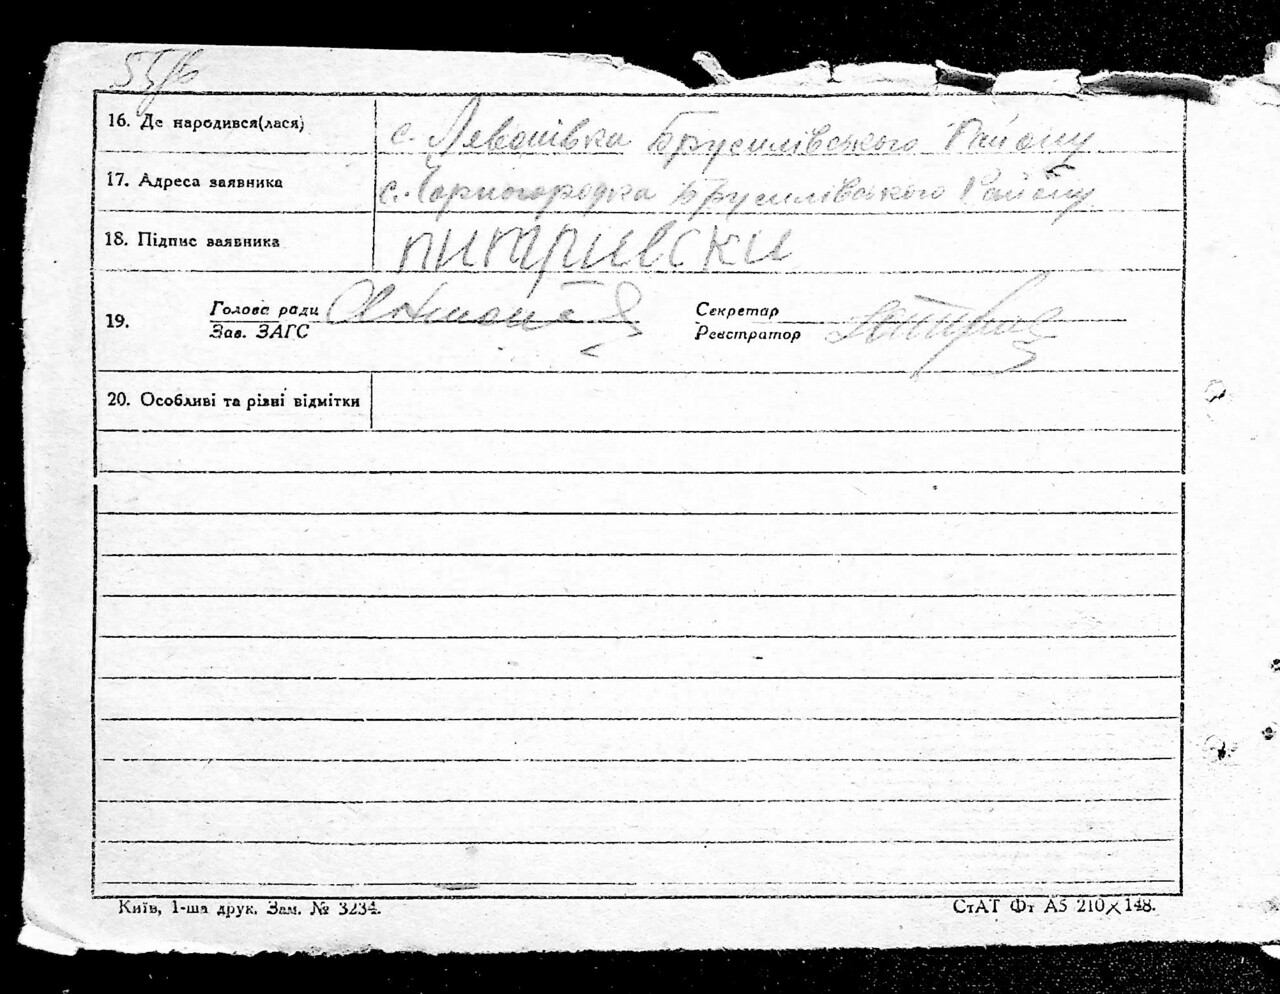 55/6
16. Де народився(лася) с. Левонівка Брусилівського Району
17. Адреса заявника с. Чорногородка Брусилівського Району
18. Підпис заявника питриевски
19. Голова ради Секретар
Зав. ЗАГС Реєстратор
20. Особливі та різні відмітки
Київ, 1-ша друк. Зам. № 3234. СтАТ Фт А5 210×148.